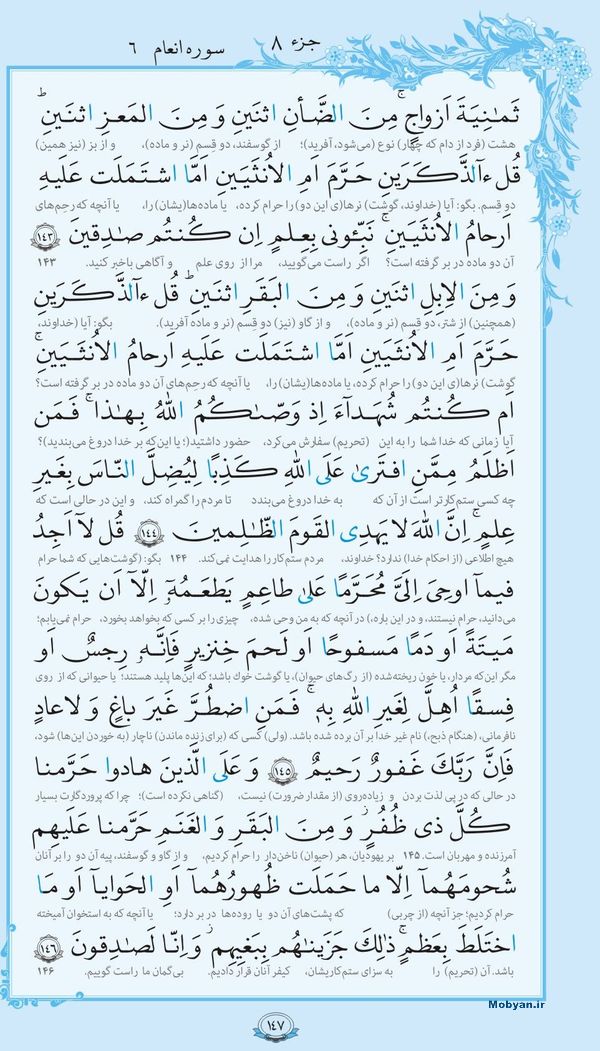 جزء ۸
سوره انعام ۶
ثَمٰنِيَةَ اَزواجٍ ۚ مِنَ الضَّأنِ اثنَينِ وَ مِنَ المَعزِ اثنَينِ ۗ
هشت (فرد از دام که چهار) نوع (می‌شود، آفرید)؛ از گوسفند، دو قِسم (نر و ماده)، و از بز (نیز همین)
قُل ءآلذَّكَرَينِ حَرَّمَ اَمِ الاُنثَيَينِ اَمَّا اشتَمَلَت عَلَيهِ
دو قِسم. بگو: آیا (خداوند، گوشت) نرها(ی این دو) را حرام کرده، یا ماده‌ها(یشان) را، یا آنچه که رحِم‌های
اَرحامُ الاُنثَيَينِ ۚ نَبِّئونى بِعِلمٍ اِن كُنتُم صادِقينَ ﴿۱۴۳﴾
آن دو ماده در بر گرفته است؟ اگر راست می‌گویید، مرا از روی علم و آگاهی باخبر کنید. ۱۴۳
وَ مِنَ الاِبِلِ اثنَينِ وَ مِنَ البَقَرِ اثنَينِ ۗ قُل ءآلذَّكَرَينِ
(همچنین) از شتر، دو قِسم (نر و ماده)، و از گاو (نیز) دو قِسم (نر و ماده آفرید). بگو: آیا (خداوند،
حَرَّمَ اَمِ الاُنثَيَينِ اَمَّا اشتَمَلَت عَلَيهِ اَرحامُ الاُنثَيَينِ ۚ
گوشت) نرها(ی این دو) را حرام کرده، یا ماده‌ها(یشان) را، یا آنچه که رحِم‌های آن دو ماده در بر گرفته است؟
اَم كُنتُم شُهَدآءَ اِذ وَصّٰىكُمُ اللهُ بِهٰذا ۚ فَمَن
آیا زمانی که خدا شما را به این (تحریم) سفارش می‌کرد، حضور داشتید(؛ یا این‌که بر خدا دروغ می‌بندید)؟
اَظلَمُ مِمَّنِ افتَرىٰ عَلَى اللهِ كَذِبًا لِيُضِلَّ النّاسَ بِغَيرِ
چه کسی ستم‌کارتر است از آن که به خدا دروغ می‌بندد تا مردم را گمراه کند، و این در حالی است که
عِلمٍ ۚ اِنَّ اللهَ لا يَهدِى القَومَ الظّالِمينَ ﴿۱۴۴﴾ قُل لآ اَجِدُ
هیچ اطلاعی (از احکام خدا) ندارد؟ خداوند، مردم ستم‌کار را هدایت نمی‌کند. ۱۴۴ بگو: (گوشت‌هایی که شما حرام
فيمآ اوحِىَ اِلَىَّ مُحَرَّمًا عَلىٰ طاعِمٍ يَطعَمُهُ~ اِلّآ اَن يَكونَ
می‌دانید، حرام نیستند، و در این باره،) در آنچه که به من وحی شده، چیزی را بر کسی که بخواهد بخورد، حرام نمی‌یابم؛
مَيتَةً اَو دَمًا مَسفوحًا اَو لَحمَ خِنزيرٍ فَاِنَّهُ رِجسٌ اَو
مگر این‌که مردار، یا خون ریخته‌شده (از رگ‌های حیوان)، یا گوشت خوک باشد؛ که این‌ها پلید هستند؛ یا حیوانی که از روی
فِسقًا اُهِلَّ لِغَيرِ اللهِ بِهِ ۚ فَمَنِ اضطُرَّ غَيرَ باغٍ وَ لا عادٍ
نافرمانی، (هنگام ذبح،) نام غیر خدا بر آن برده شده باشد. (ولی) کسی که (برای زنده ماندن) ناچار (به خوردن این‌ها) شود،
فَاِنَّ رَبَّكَ غَفورٌ رَحيمٌ ﴿۱۴۵﴾ وَ عَلَى الَّذينَ هادوا حَرَّمنا
در حالی که در پی لذت بردن و زیاده‌روی (از مقدار ضرورت) نیست، (گناهی نکرده است)؛ چرا که پروردگارت بسیار
كُلَّ ذى ظُفُرٍ ۖ وَ مِنَ البَقَرِ وَ الغَنَمِ حَرَّمنا عَلَيهِم
آمرزنده و مهربان است. ۱۴۵ بر یهودیان، هر (حیوان) ناخن‌دار را حرام کردیم، و از گاو و گوسفند، پیه آن دو را بر آنان
شُحومَهُمآ اِلّا ما حَمَلَت ظُهورُهُمآ اَوِ الحَوايآ اَو مَا
حرام کردیم؛ جز آنچه (از چربی) که پشت‌های آن دو یا روده‌ها در بر دارد؛ یا آنچه که به استخوان آمیخته
اختَلَطَ بِعَظمٍ ۚ ذٰلِكَ جَزَينٰهُم بِبَغيِهِم ۖ وَ اِنّا لَصادِقونَ ﴿۱۴۶﴾
باشد. آن (تحریم) را به سزای ستم‌کاریشان، کیفر آنان قرار دادیم. بی‌گمان ما راست گوییم. ۱۴۶
Mobyan.ir
۱۴۷